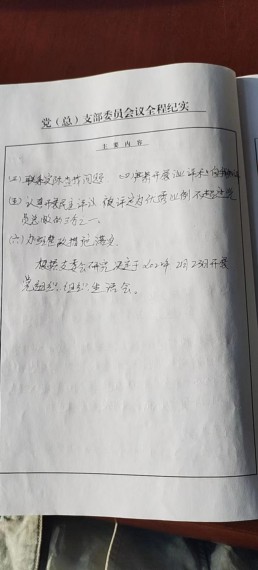 党（总）支部委员会议全程纪实
主要内容
(三)联系实际查摆问题 (四)开展
(五)认真开展民主评议 评定为优秀比例不超过党
员总数的三分之一。
(六)整改措施落实
根据支委会研究决定于2021年2月23日开展
组织生活会。